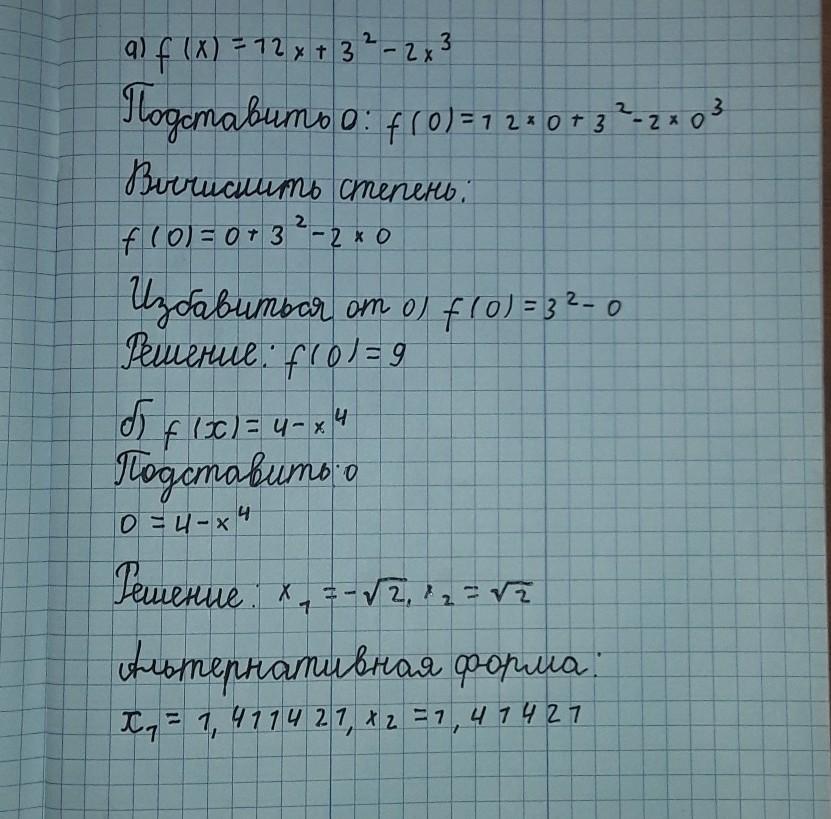 а) f (x) = 12x + 3² - 2x³
Подставить 0: f (0) = 12 × 0 + 3² - 2 × 0³
Вычислить степень:
f (0) = 0 + 3² - 2 × 0
Избавиться от 0) f (0) = 3² - 0
Решение: f (0) = 9
б) f (x) = 4 - x⁴
Подставить 0
0 = 4 - x⁴
Решение: x₁ = -√2, x₂ = √2
Альтернативная форма:
x₁ = 1,411421, x₂ = 1,41421